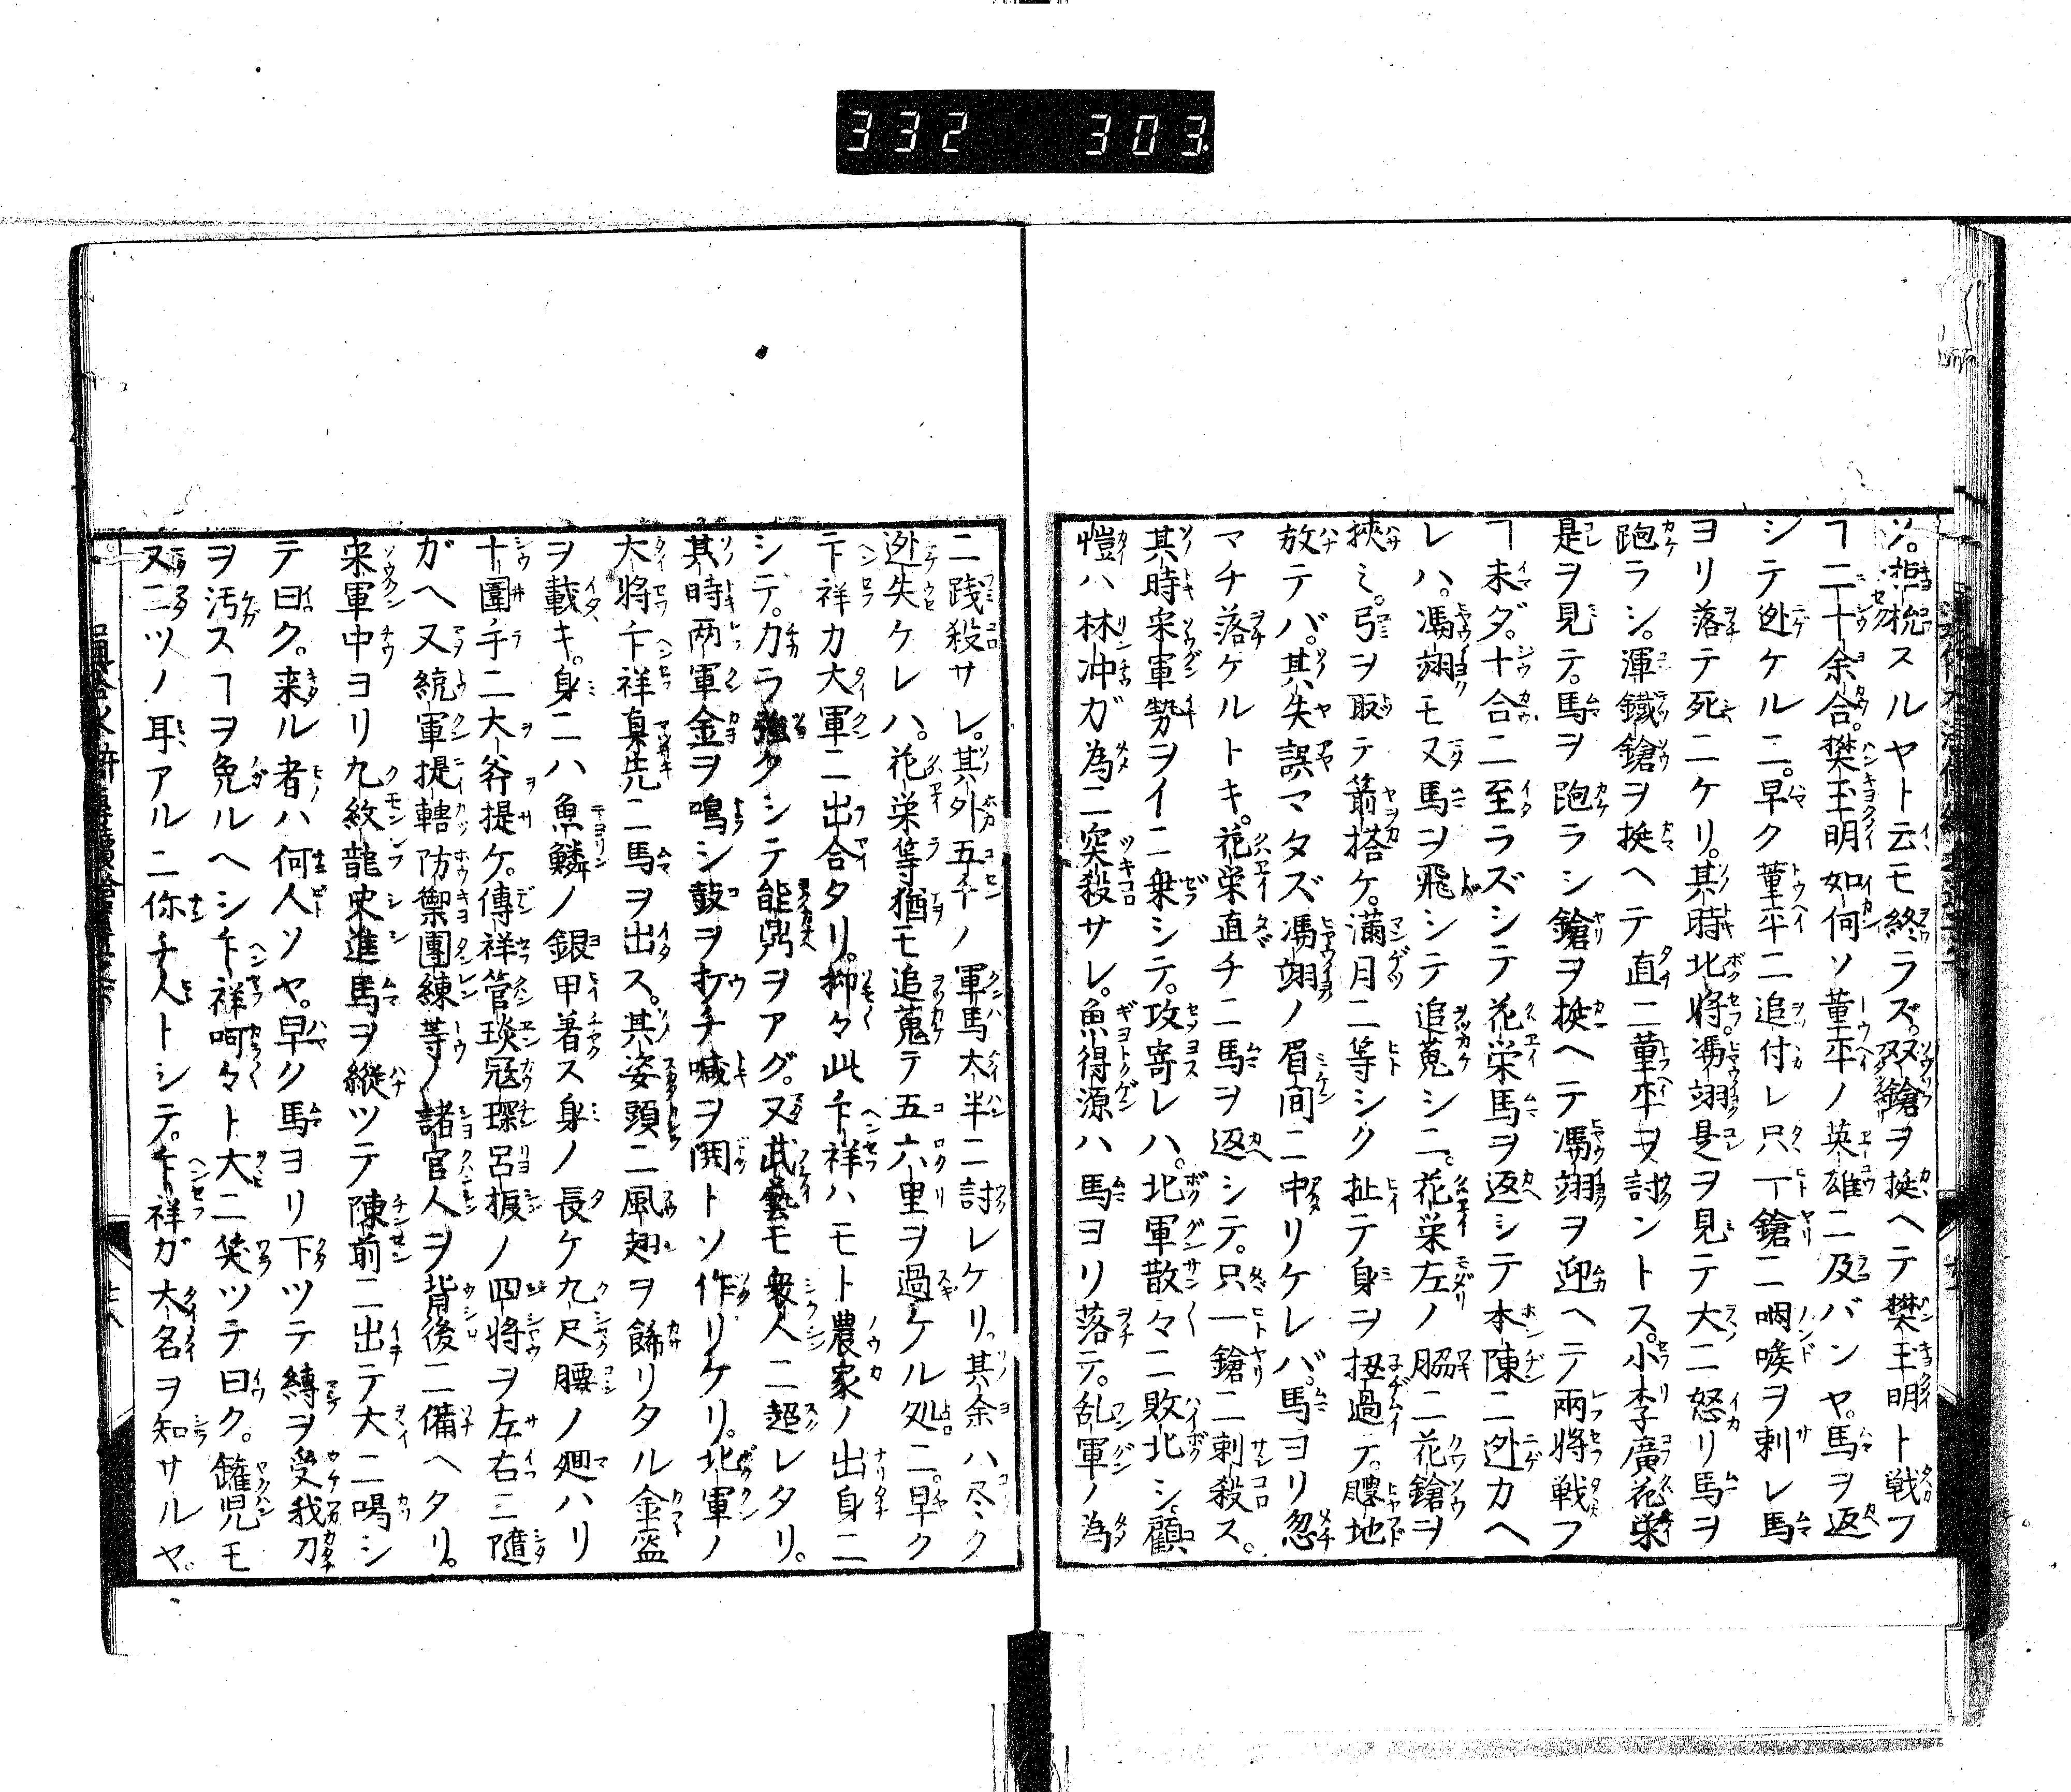 332 303
ソ。拒抗スルヤト云モ終ラズ。双鎗ヲ挺ヘテ樊玉明ト戦フ
ヿ二十余合。樊玉明如何ソ董平ノ英雄ニ及バンヤ。馬ヲ返
シテ迯ケルニ。早ク董平ニ追付レ只一鎗ニ咽喉ヲ刺レ馬
ヨリ落テ死ニケリ。其時北将馮翊是ヲ見テ大ニ怒リ馬ヲ
跑ラシ。渾鐵鎗ヲ挨ヘテ直ニ董平ヲ討ントス。小李廣花栄
是ヲ見テ。馬ヲ跑ラシ鎗ヲ挨ヘテ馮翊ヲ迎ヘテ兩将戦フ
ヿ未ダ。十合ニ至ラズシテ花栄馬ヲ返シテ本陳ニ迯カヘ
レハ。馮翊モ又馬ヲ飛シテ追蒐シニ。花栄左ノ脇ニ花鎗ヲ
挾ミ。弓ヲ取テ箭搭ケ。滿月ニ等シク扯テ身ヲ扭過テ。䠶地
放テバ。其失誤マタズ馮翊ノ眉間ニ中リケレバ。馬ヨリ忽
マチ落ケルトキ。花栄直チニ馬ヲ返シテ。只一鎗ニ刺殺ス。
其時宋軍勢ヲイニ乗シテ。攻寄レハ。北軍散々ニ敗北シ。顧
愷ハ林冲ガ為ニ突殺サレ。魚得源ハ馬ヨリ落テ。乱軍ノ為
ニ践殺サレ。其外五千ノ軍馬大半ニ討レケリ。其余ハ尽ク
迯失ケレハ。花栄等猶モ追蒐テ五六里ヲ過ケル処ニ。早ク
卞祥カ大軍ニ出合タリ。抑々此卞祥ハモト農家ノ出身ニ
シテ。力ラ強クシテ能鼎ヲアグ。又武藝モ衆人ニ超レタリ。
其時兩軍金ヲ鳴シ鼓ヲ打チ喊ヲ閧トソ作リケリ。北軍ノ
大将卞祥真先ニ馬ヲ出ス。其姿頭ニ風翅ヲ餙リタル金盔
ヲ載キ。身ニハ魚鱗ノ銀甲著ス身ノ長ケ九尺腰ノ廻ハリ
十圍手ニ大斧提ケ。傅祥管琰寇琛呂振ノ四将ヲ左右ニ隨
ガヘ又統軍提轄防禦團練等ノ諸官人ヲ背後ニ備ヘタリ。
宋軍中ヨリ九紋龍史進馬ヲ縦ツテ陳前ニ出テ大ニ喝シ
テ曰ク。来ル者ハ何人ソヤ。早ク馬ヨリ下ツテ縛ヲ受我刀
ヲ汚スヿヲ免ルヘシ卞祥呵々ト大ニ笑ツテ曰ク。鑵児モ
又二ツノ耳アルニ你チ人トシテ。卞祥ガ大名ヲ知サルヤ。